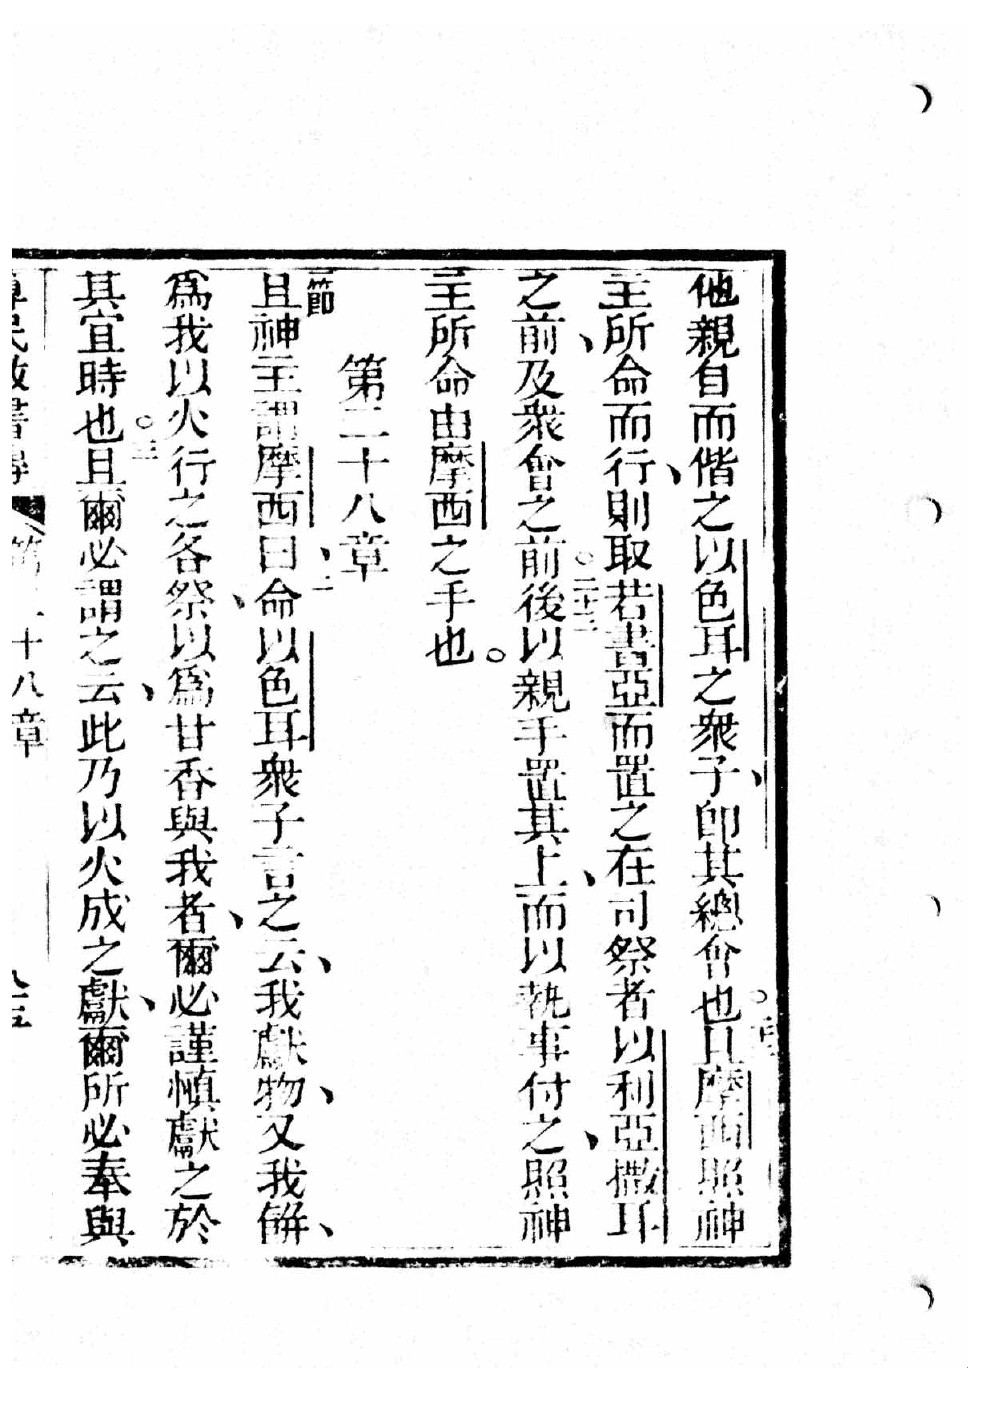 他親自而偕之以色耳之衆子、卽其總會也○二十二且摩西照神
主所命而行、則取若書亞而置之在司祭者以利亞撒耳
之前、及衆會之前○二十三後以親手置其上、而以執事付之、照神
主所命由摩西之手也。
第二十八章
一節且神主謂摩西曰、二命以色耳衆子言之云、我獻物、又我餅、
爲我以火行之各祭、以爲甘香與我者、爾必謹慎獻之於
其宜時也○三且爾必謂之云、此乃以火成之獻、爾所必奉與
民數書尋 第二十八章